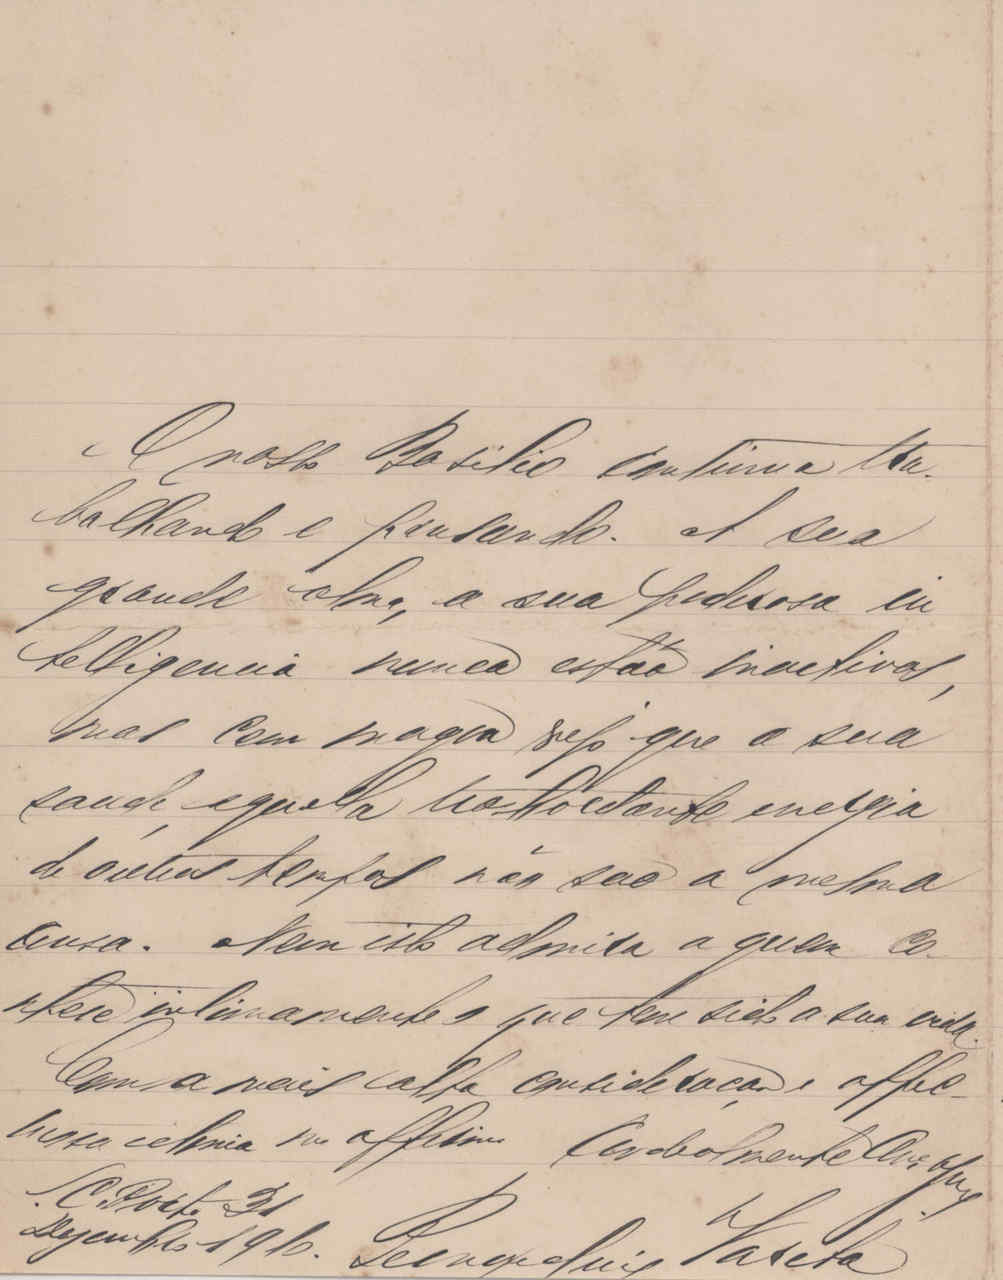 O nosso Basilio continua tra-
balhando e pensando. A sua
grande alma, a sua poderosa in
telligencia nunca estão inactivas,
mas com magoa vejo que a sua
saude, e aquella trasbordante energia
de outros tempos não são a mesma
cousa. Nem isto admira a quem co-
nhece intimamente o que tem sido a sua vida.
Com a mais alta consideração e affec-
tuosa estima me affirmo Cordealmente
C. Porto 31
Dezembro 1910.